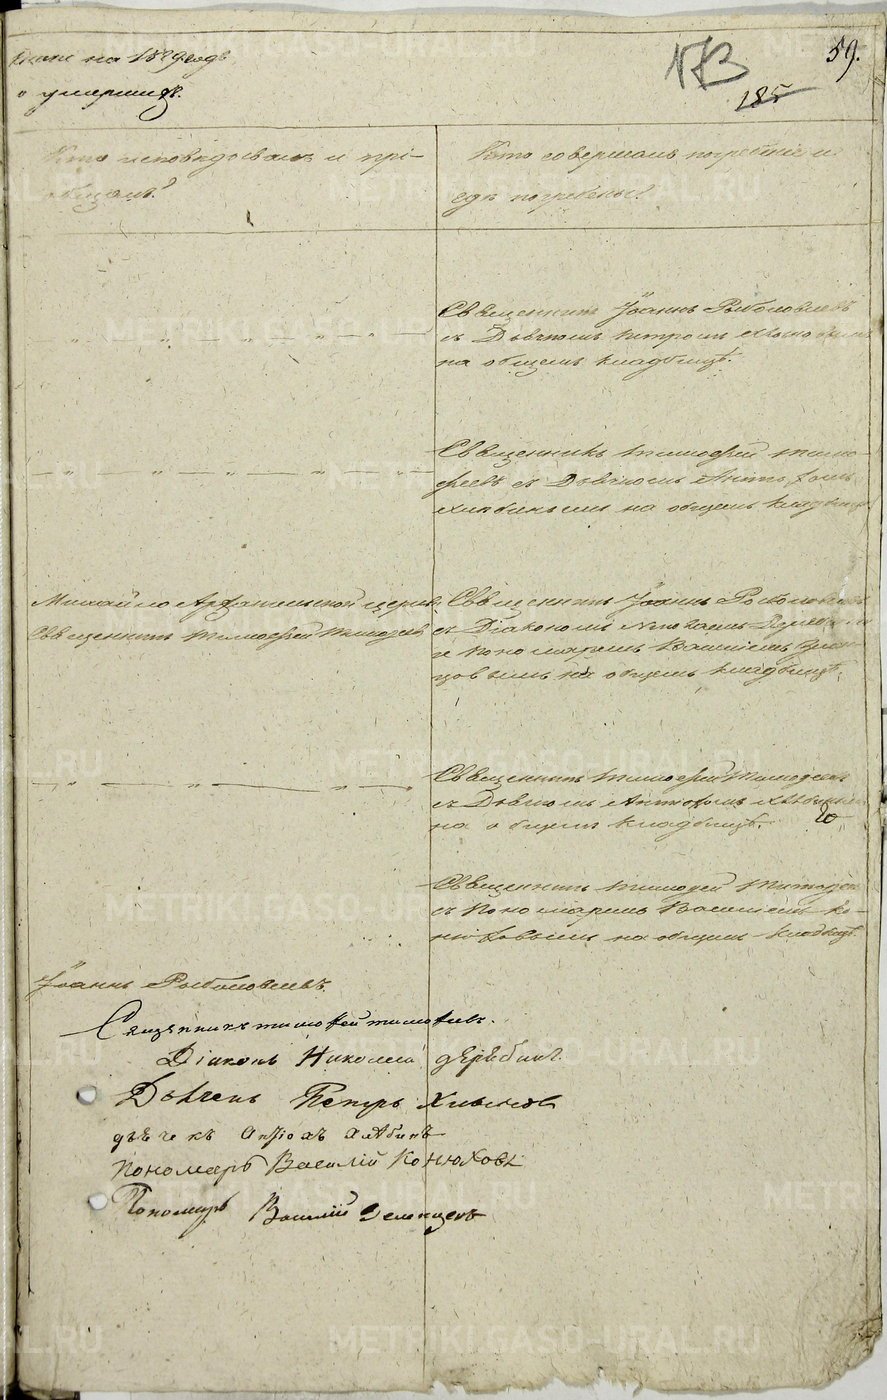 на 1829 годъ
59.
173
о умершихъ.
185
Кто исповѣдовалъ и прі-
общалъ?
Кто совершалъ погребеніе и
гдѣ погребены?
Священникъ Іоаннъ Рыболовлевъ
съ Дьячкомъ Петромъ
на общемъ кладбищѣ.
Священникъ Тимофей Тимо-
феевъ съ Дьячкомъ
на общемъ кладбищѣ
Михайло Архангельской церкви
Священникъ Тимофей Тимофеевъ
Священникъ Іоаннъ Рыболовлевъ
съ Діакономъ Николаемъ
и Пономаремъ Васильемъ Зелен-
цовымъ на общемъ кладбищѣ.
Священникъ Тимофей Тимофеевъ
съ Дьячкомъ
на общемъ кладбищѣ.
Священникъ Тимофей Тимофеевъ
съ Пономаремъ Васильемъ Ко-
нюховымъ на общемъ кладбищѣ.
Іоаннъ Рыболовлевъ.
Священникъ Тимофей Тимофеевъ.
Діаконъ Николай Дерябинъ.
Дьячекъ Петръ
дьячекъ Антіохъ Хлѣбинъ
Пономарь Василій Конюховъ
Пономарь Василій Зеленцовъ
METRIKI.GASO-URAL.RU